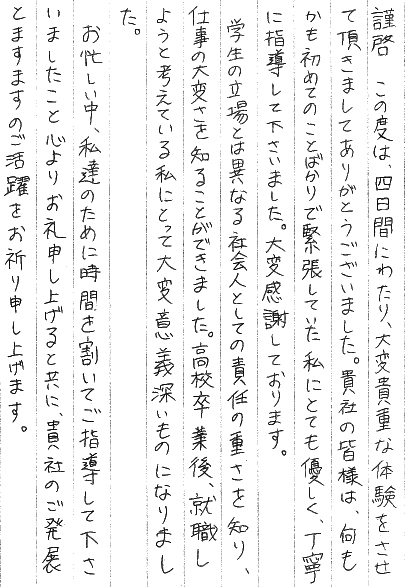 謹啓　この度は、四日間にわたり、大変貴重な体験をさせ
て頂きましてありがとうございました。貴社の皆様は、何も
かも初めてのことばかりで緊張していた私にとても優しく、丁寧
に指導して下さいました。大変感謝しております。
学生の立場とは異なる社会人としての責任の重さを知り、
仕事の大変さを知ることができました。高校卒業後、就職し
ようと考えている私にとって大変意義深いものになりまし
た。
お忙しい中、私達のために時間を割いてご指導して下さ
いましたこと心よりお礼申し上げると共に、貴社のご発展
とますますのご活躍をお祈り申し上げます。